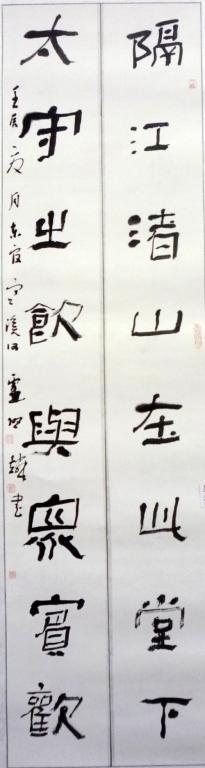 隔江渚山在此堂下
太守之飲與衆賓歡
壬辰夏月
書